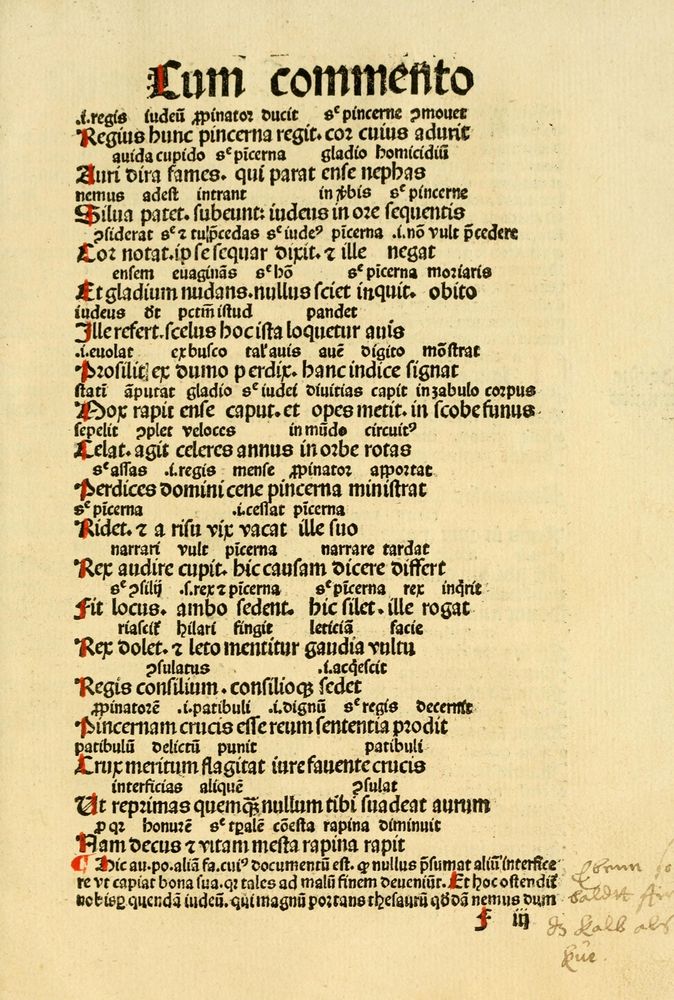 Cum commento
.i. regis iudeū ꝓpinator ducit sᶜ pincerne ꝯmouet
Regius hunc pincerna regit. cor cuius adurit
auida cupido sᶜ pīcerna gladio homicidiū
Auri dira fames. qui parat ense nephas
nemus adest intrant sᶜ pincerne
Silua patet. subeunt: iudeus in ore sequentis
ꝯsiderat sᶜ ⁊ tu p̄cedas sᶜ iudeꝰ pīcerna .i. nō vult p̄cedere
Cor notat. ipse sequar dixit. ⁊ ille negat
ensem euaginās sᶜ hō sᶜ pīcerna moriaris
Et gladium nudans. nullus sciet inquit. obito
iudeus dt̄ pctm̄ istud pandet
Ille refert. scelus hoc ista loquetur auis
.i. euolat ex busco tal' auis auē digito mōstrat
Prosilit ex dumo perdix. hanc indice signat
statī āputat gladio sᶜ iudei diuitias capit in zabulo corpus
Mox rapit ense caput. et opes metit. in scobe funus
sepelit ꝯplet veloces in mūdo circuitꝰ
Celat. agit celeres annus in orbe rotas
sᶜ assas .i. regis mense ꝓpinator apportat
Perdices domini cene pincerna ministrat
sᶜ pīcerna .i. cessat pīcerna
Ridet. ⁊ a risu vix vacat ille suo
narrari vult pīcerna narrare tardat
Rex audire cupit. hic causam dicere differt
sᶜ ꝯsilij .s. rex ⁊ pīcerna sᶜ pīcerna rex inq̄rit
Fit locus. ambo sedent. hic silet. ille rogat
hilari fingit leticiā facie
Rex dolet. ⁊ leto mentitur gaudia vultu
ꝯsulatus .i. acq̄escit
Regis consilium. consilioqꝫ sedet
ꝓpinatorē .i. patibuli .i. dignū sᶜ regis decernit
Pincernam crucis esse reum sententia prodit
patibulū delictū punit patibuli
Crux meritum flagitat iure fauente crucis
interficias aliquē ꝯsulat
Ut reprimas quemqꝫ nullum tibi suadeat aurum
honurē sᶜ rapina diminuit
Nam decus ⁊ vitam mesta rapina rapit
¶ Hic au. po. aliā fa. cuiꝰ documentū est. ꝙ nullus p̄sumat aliū interfice
re vt capiat bona sua. qꝛ tales ad malū finem deueniūt. Et hoc ostendit
nobis ꝑ quendā iudeū. qui magnū portans thesaurū nemus dum
f iij